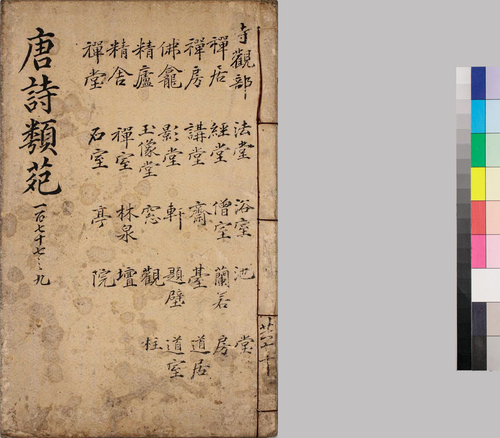 寺觀部 法堂 浴室 池 堂
禪居 經堂 僧室 蘭若 房
禪房 講堂 齋 臺 道居
佛龕 影堂 軒 題壁 道室
精廬 玉像堂 窓 觀 柱
精舍 禪室 林泉 壇
禪堂 石室 亭 院
唐詩類苑
一百七十七之九